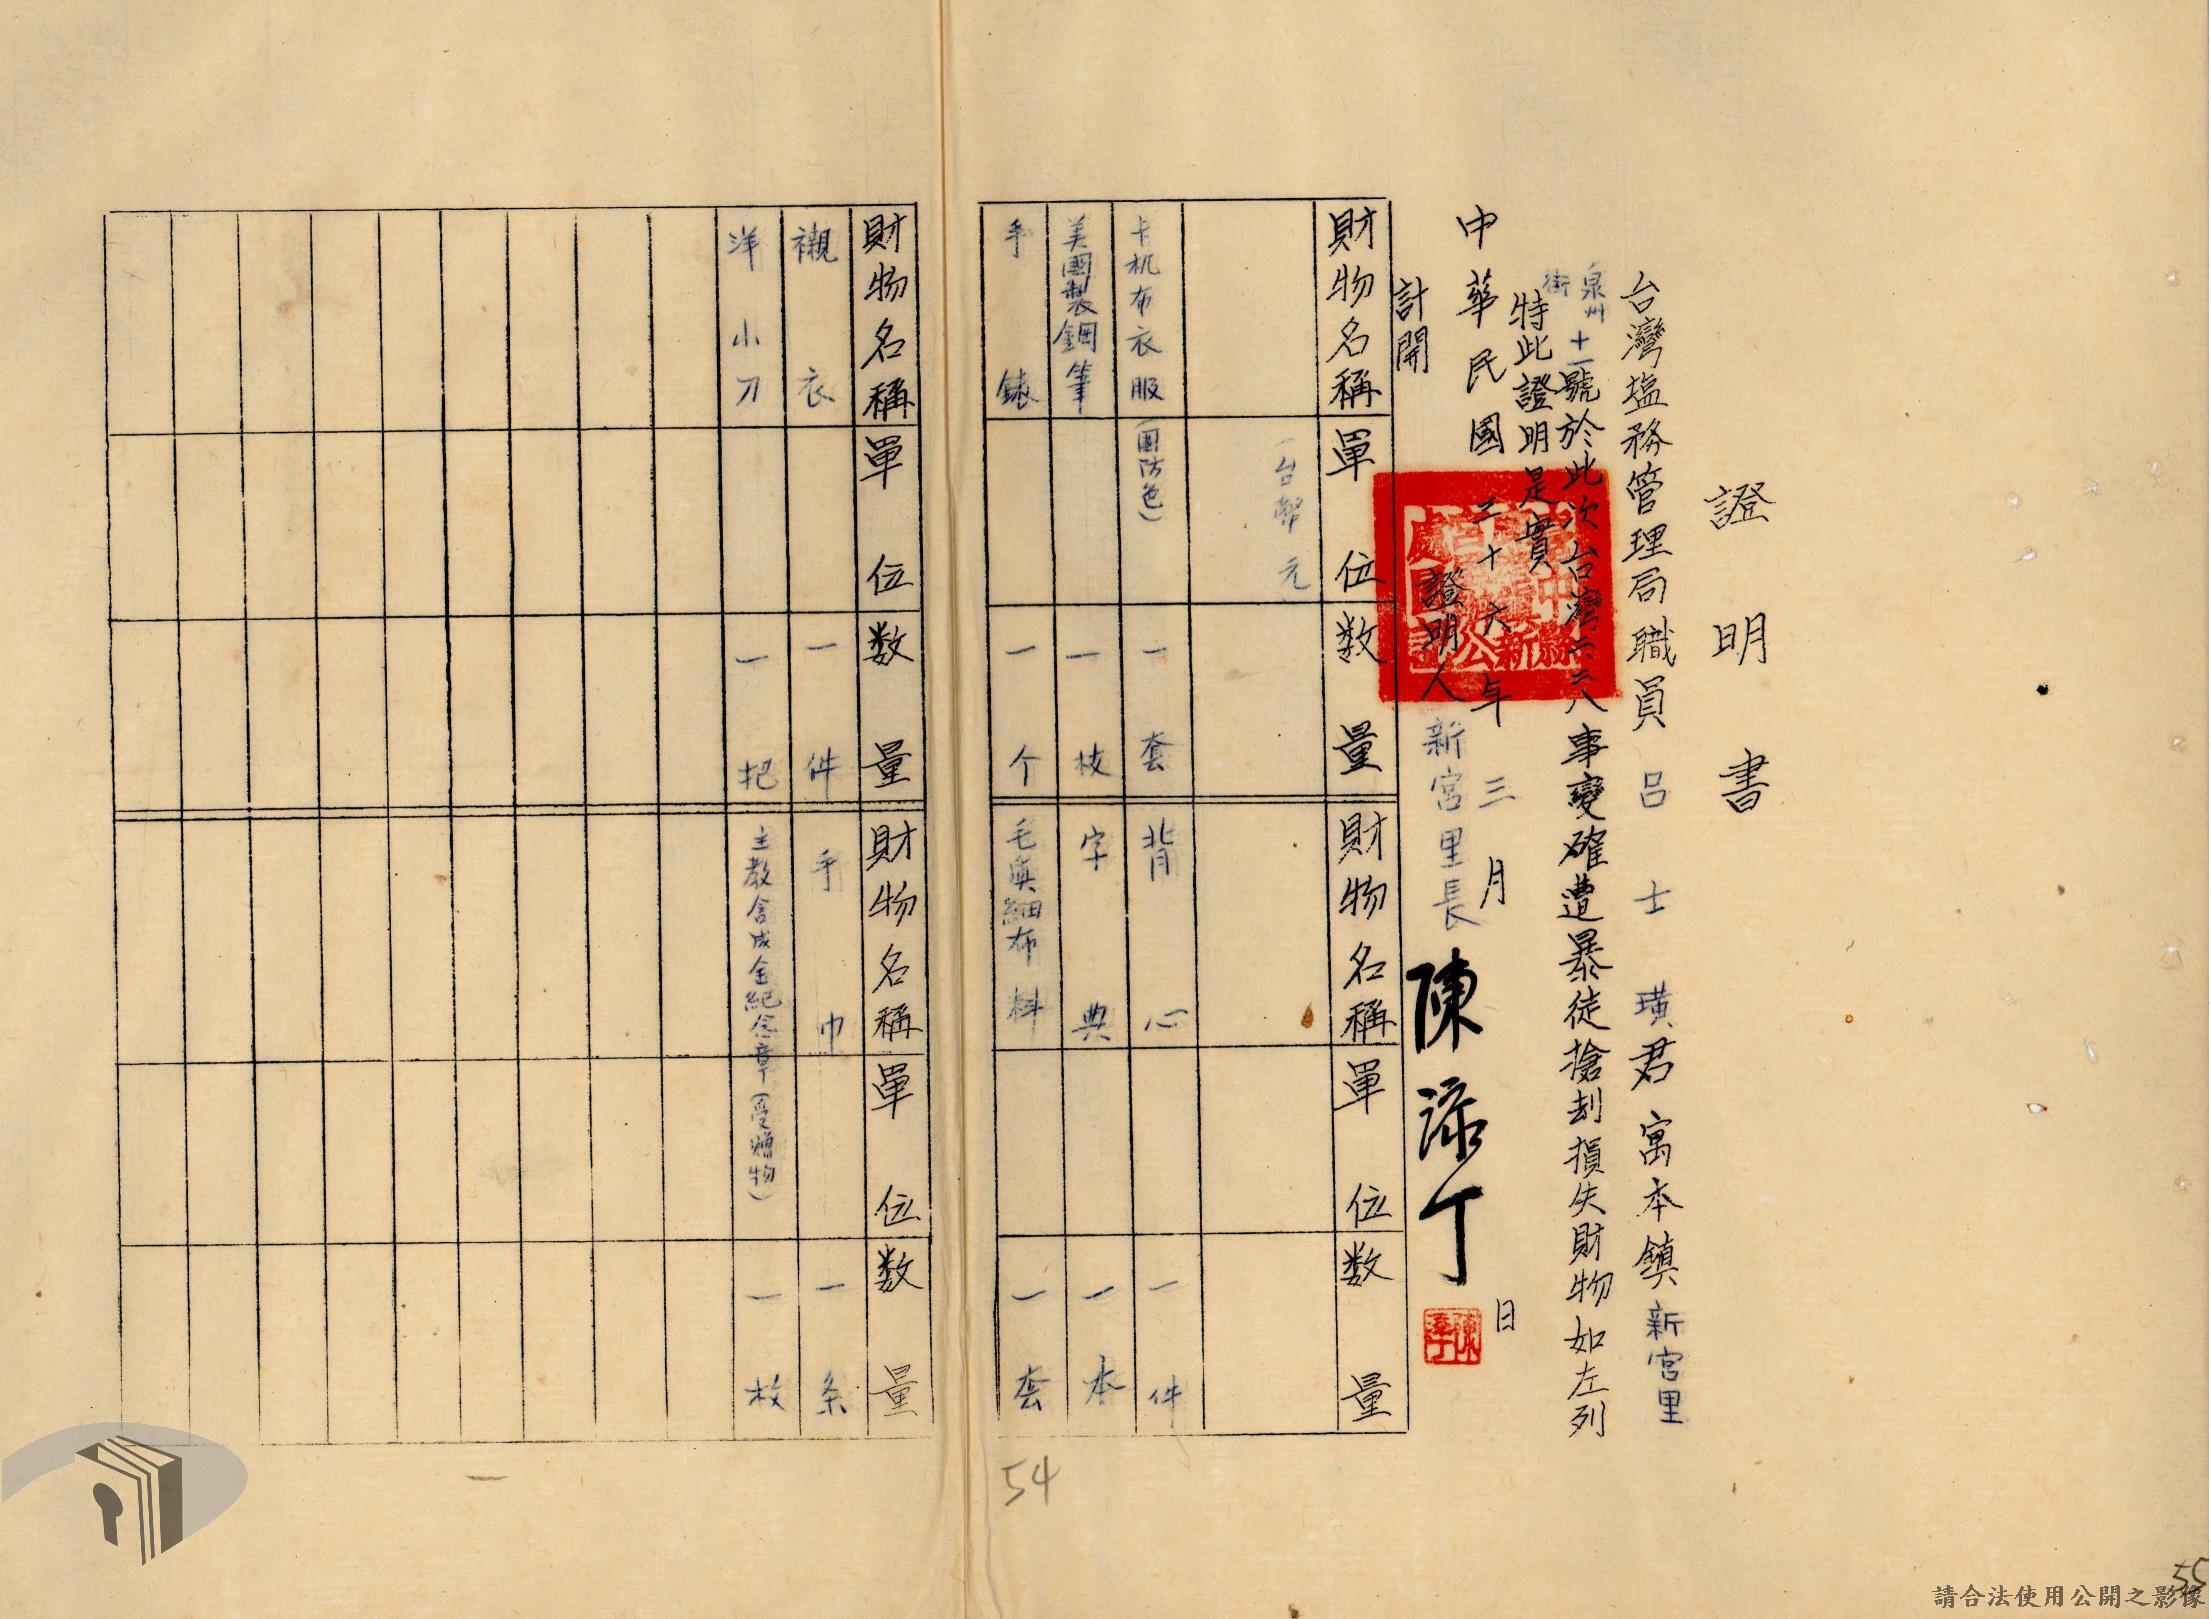 證明書
台灣塩務管理局職員呂士璜君寓本鎮新宮里
泉州街十一號於此次台灣二二八事變確遭暴徒搶刦損失財物如左列
特此證明是實
中華民國三十六年三月 日
證明人 新宮里長 陳 丁
計開
財物名稱 單位 数量 財物名稱 單位 数量
(台幣元
卡机布衣服(國防色) 一套 背心 一件
美國製鋼筆 一枝 字典 一本
手錶 一个 毛 細布料 一套
財物名稱 單位 数量 財物名稱 單位 数量
襯衣 一件 手巾 一条
洋小刀 一把 主教含成金紀念章(受贈物) 一枚
一
54
55
請合法使用公開之影像